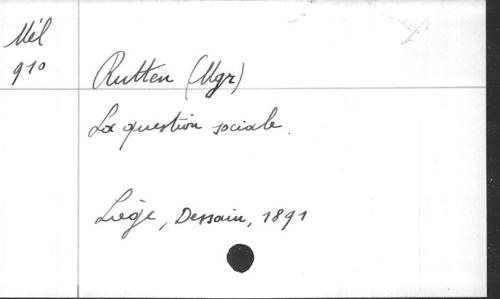 Mél
910
Rutten (Mgr)
La question sociale.
Liège, Dessain, 1891